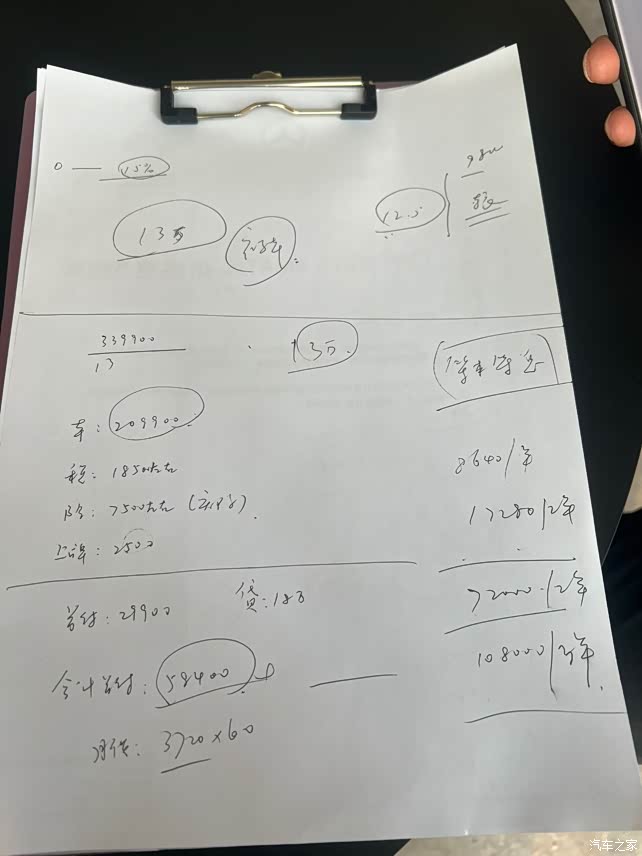 0 — 15%
13万
12.5
339900
13
13万
车: 209900
税: 18500左右
险: 7500左右
上牌: 2500
8640/年
17280/2年
首付: 29900
贷: 18万
72000/2年
合计首付: 58400
108000/3年
月供: 3720×60
汽车之家